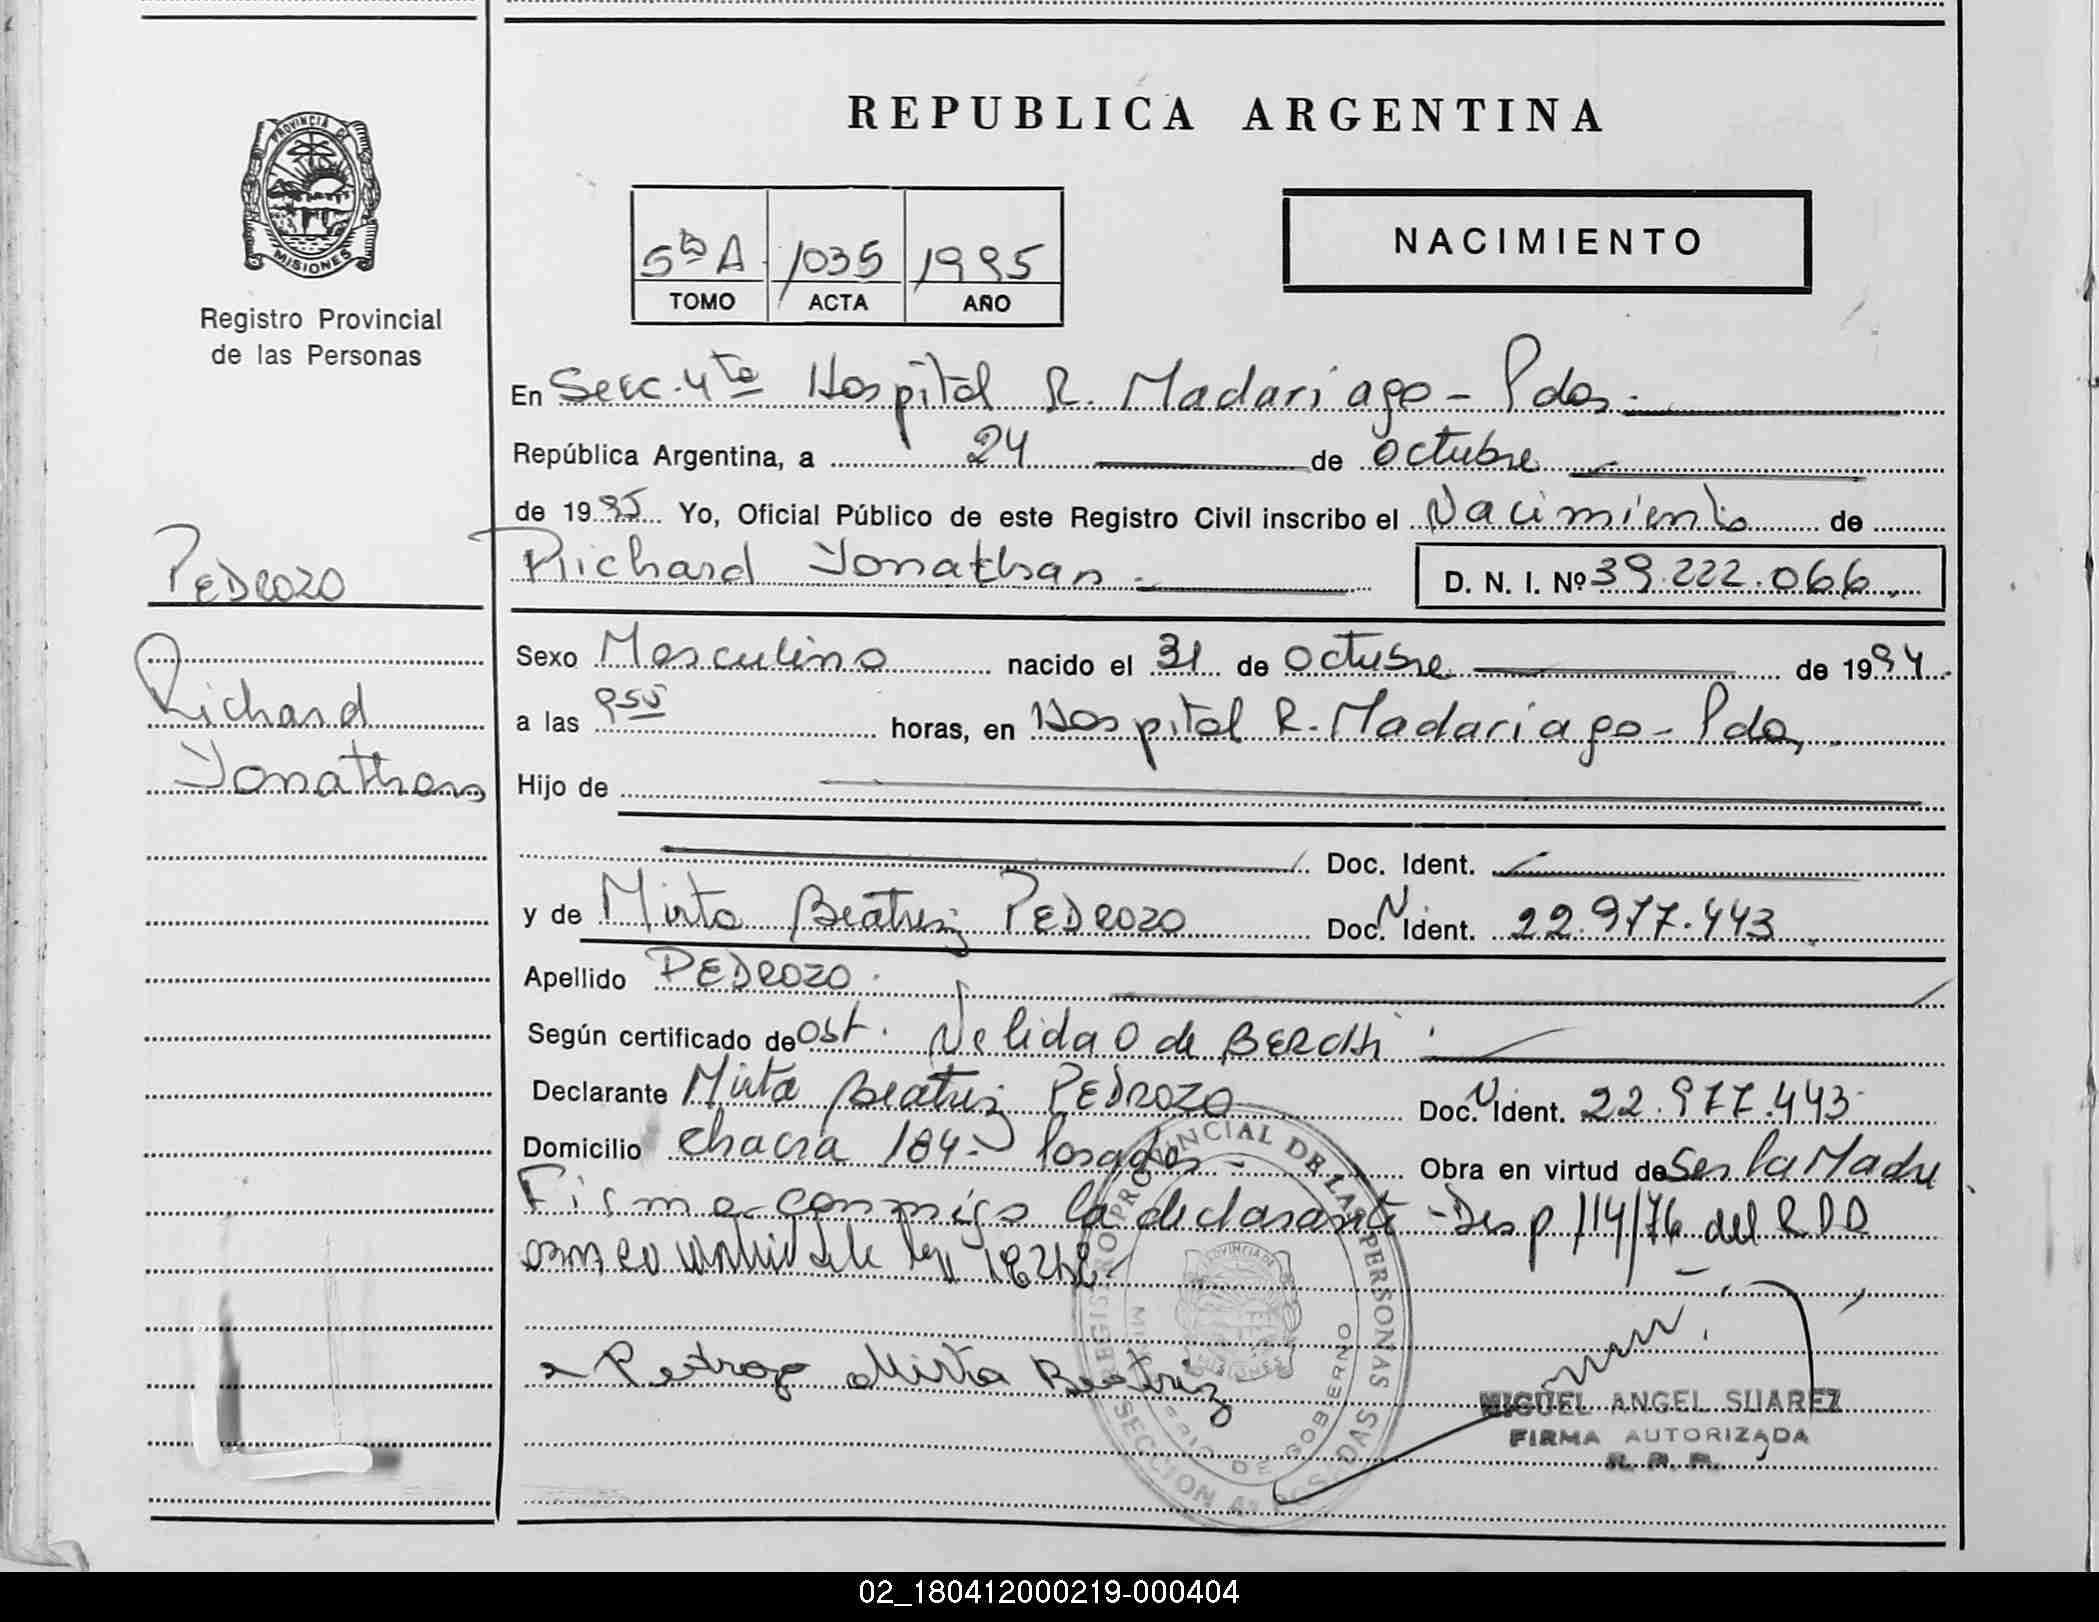 REPUBLICA ARGENTINA
PROVINCIA DE
MISIONES
Registro Provincial
de las Personas
5to A 1035 1995
TOMO ACTA AÑO
NACIMIENTO
En Secc. 4ta Hospital R. Madariaga - Pdas.
República Argentina, a 24 de octubre
de 1995 Yo, Oficial Público de este Registro Civil inscribo el Nacimiento de
Richard Yonathan D. N. I. Nº 39.222.066
PEDROZO
Richard
Yonathan
Sexo Masculino nacido el 31 de octubre de 1994
a las 955 horas, en Hospital R. Madariaga - Pdas.
Hijo de
Doc. Ident.
y de Mirta Beatriz PEDROZO Doc. N Ident. 22.977.443
Apellido PEDROZO.
Según certificado de Obst. Nelida O de
Declarante Mirta Beatriz PEDROZO Doc. N Ident. 22.977.443
Domicilio chacra 184 - Posadas - Obra en virtud de Ser la Madre
Firma conmigo la declarante - Disp 114/76 del
ley 18248
Pedrozo Mirta Beatriz
REGISTRO PROVINCIAL DE LAS PERSONAS
SECCION 4ª POSADAS
MINISTERIO DE GOBIERNO
PROVINCIA DE
MISIONES
MIGUEL ANGEL SUAREZ
FIRMA AUTORIZADA
R. P. P.
02_180412000219-000404